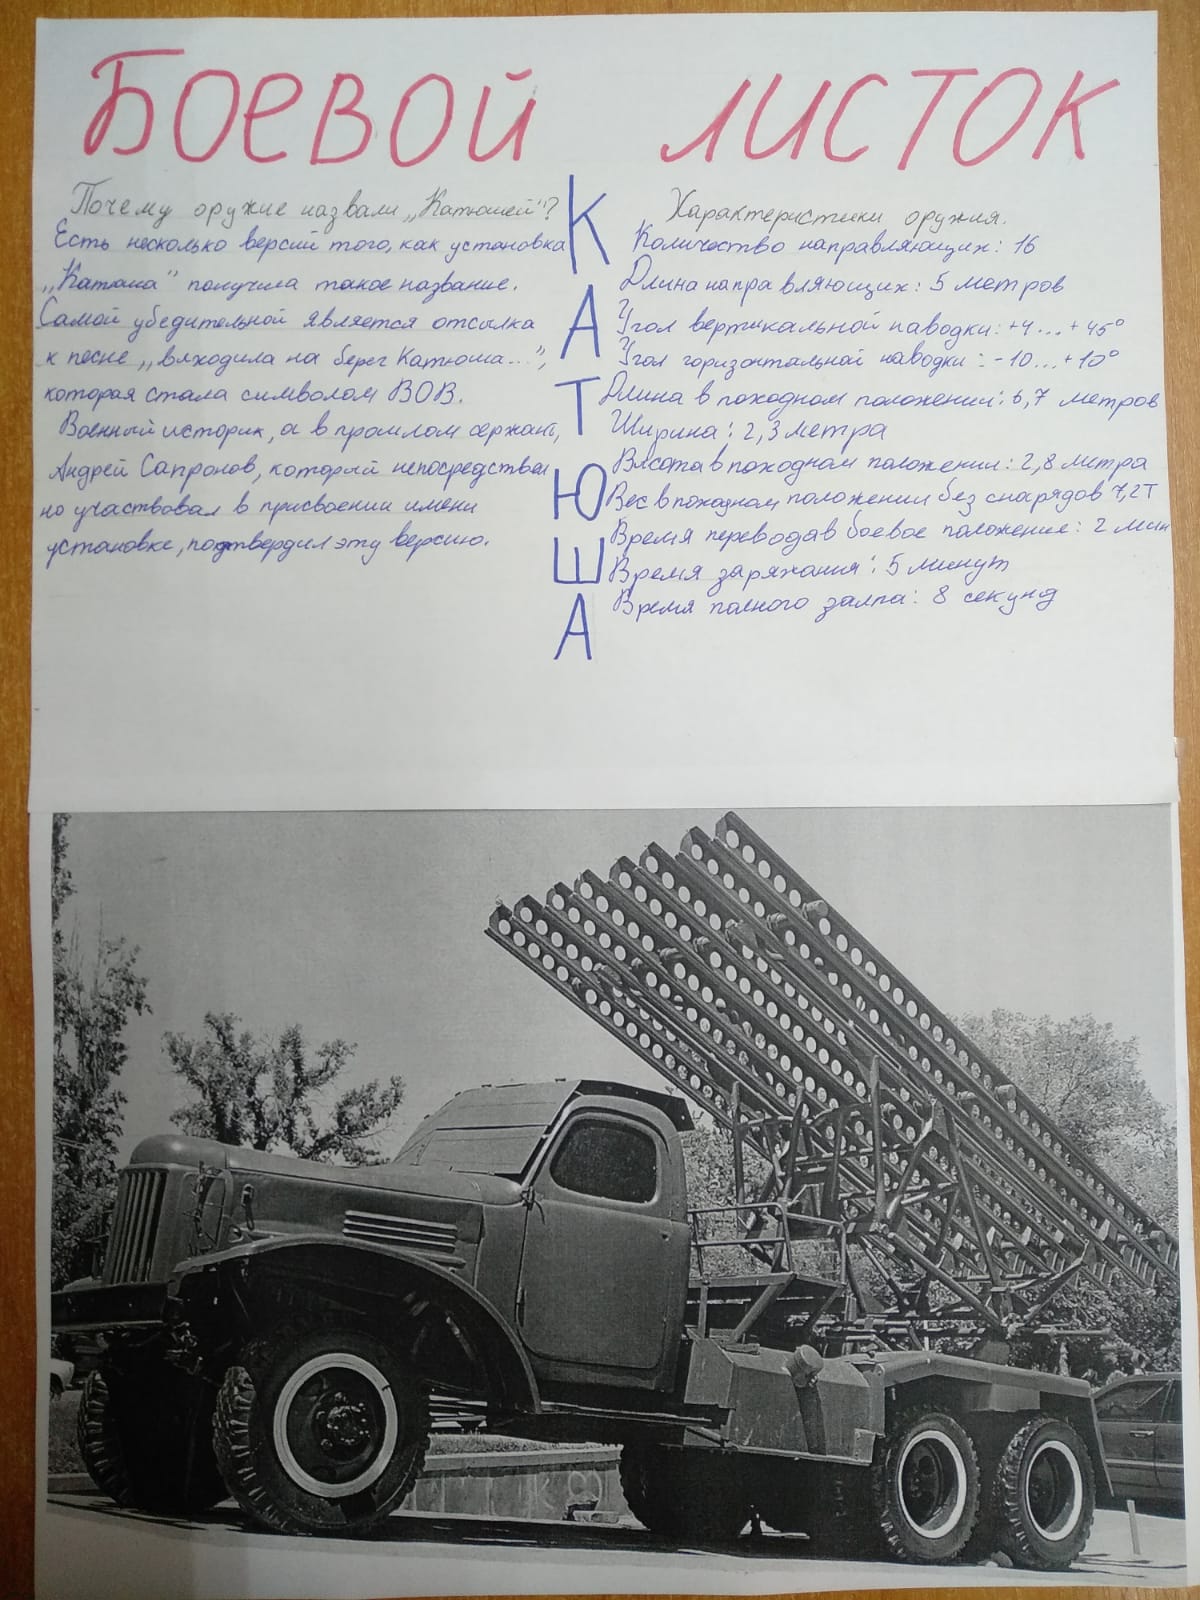 БОЕВОЙ ЛИСТОК
Почему оружие назвали „Катюшей"?
Есть несколько версий того, как установка
„Катюша" получила такое название.
Самой убедительной является отсылка
к песне „выходила на берег Катюша...",
которая стала символом ВОВ.
Военный историк, а в прошлом сержант,
Андрей Сапронов, который непосредствен
но участвовал в присвоении имени
установке, подтвердил эту версию.
К
А
Т
Ю
Ш
А
Характеристики оружия.
Количество направляющих: 16
Длина направляющих: 5 метров
Угол вертикальной наводки: +4...+45°
Угол горизонтальной наводки: -10...+10°
Длина в походном положении: 6,7 метров
Ширина: 2,3 метра
Высота в походном положении: 2,8 метра
Вес в походном положении без снарядов 7,2т
Время перевода в боевое положение: 2 мин
Время заряжания: 5 минут
Время полного залпа: 8 секунд